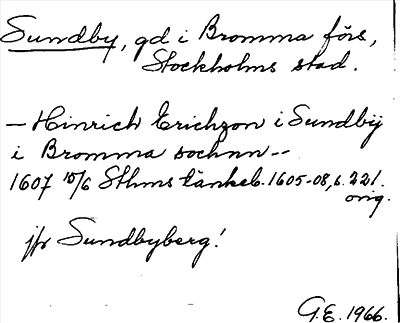 Sundby, gd i Bromma förs,
Stockholms stad.
– Hinrich Erichzon i Sundbij
i Bromma sochnn --
1607 10/6 Sthms tänkeb. 1605-08, s. 221.
orig.
jfr Sundbyberg!
G.E. 1966.